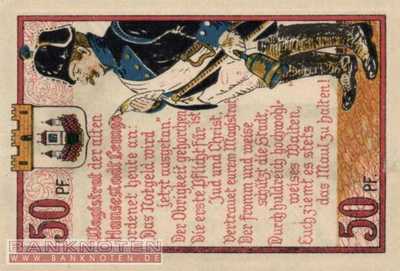 Magistrat der alten
Hansestadt Lemgo
ordenet heute an:
Das Notgeld wird
jetzt ausgetan.
Der Obrigkeit gehorchen
Die erste Pflicht für ist
Jud und Christ,
Vertrauet eurem Magistrat
Der fromm und weise
schützt die Stadt,
Durch huldreich hochwohl-
weises Walten,
Euch ziemt es stets
das Maul zu halten!
50 PF.
50 PF.
BANKNOTEN
WWW.BANKNOTEN.DE